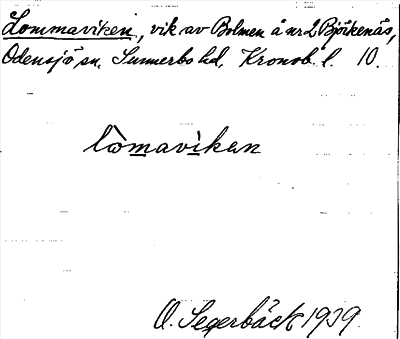 Lommaviken, vik av Bolmen å nr 2 Björkenäs,
Odensjö sn, Sunnerbo hd, Kronob. l. 10.
lòmavikan
O. Segerbäck 1939